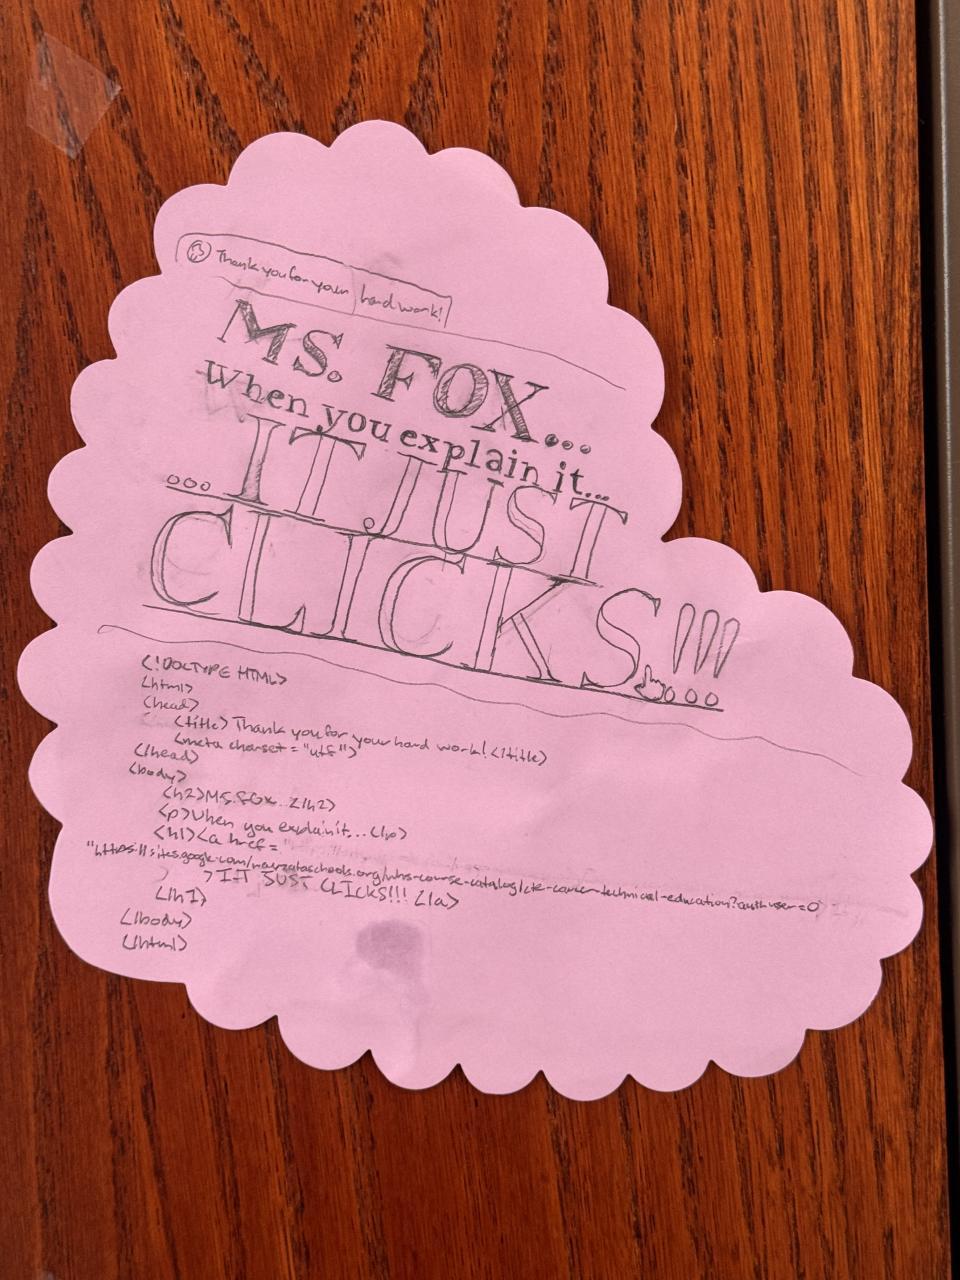 Thank you for your hard work!
MS. FOX...
When you explain it...
...IT JUST
CLICKS!!!
...
<!DOCTYPE HTML>
<html>
<head>
<title>Thank you for your hard work!</title>
<meta charset="utf">
</head>
<body>
<h2>MS.FOX...</h2>
<p>When you explain it...</p>
<h1><a href=
"https://sites.google.com/
>IT JUST CLICKS!!!</a>
</h1>
</body>
</html>